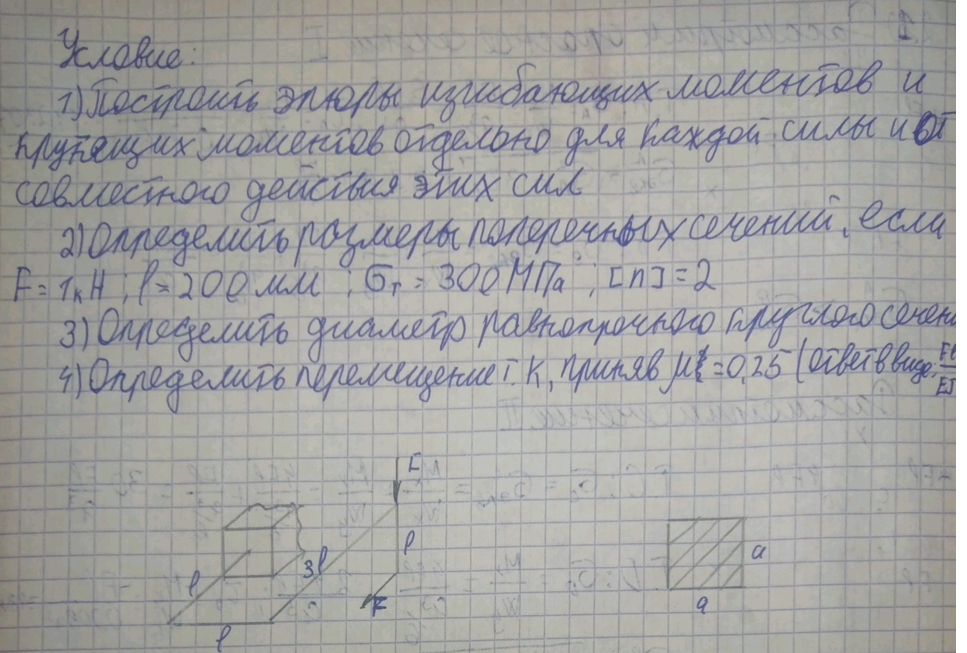 Условие:
1) Построить эпюры изгибающих моментов и
крутящих моментов отдельно для каждой силы и от
совместного действия этих сил
2) Определить размеры поперечных сечений, если
F = 1кН ; l = 200 мм ; σт = 300 МПа ; [n] = 2
3) Определить диаметр равнопрочного круглого сечен
4) Определить перемещение т. K, приняв μ = 0,25 (ответ в виде:
F
l
3l
l
K
l
a
a